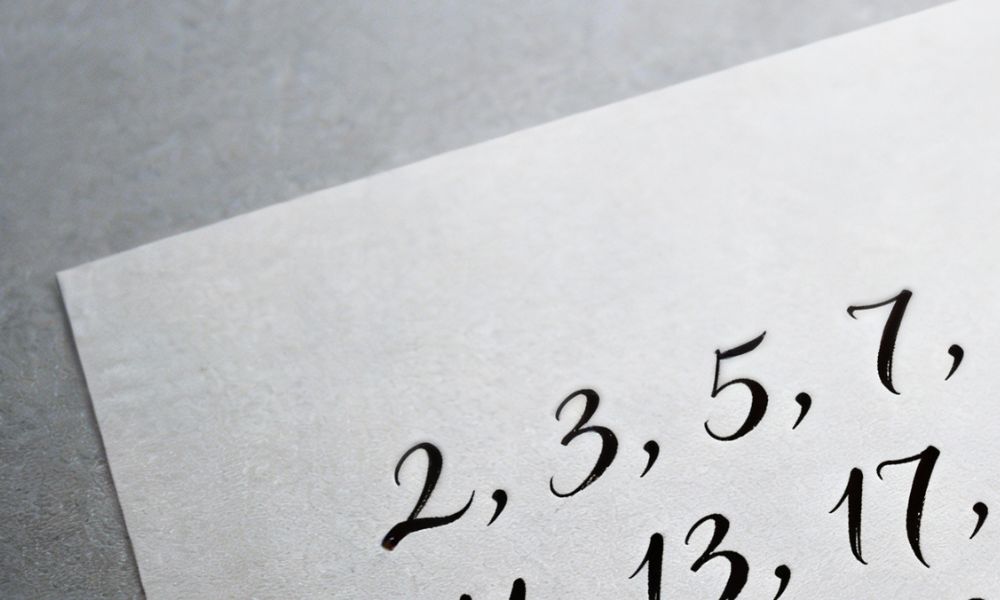 2, 3, 5, 7,
13, 17,